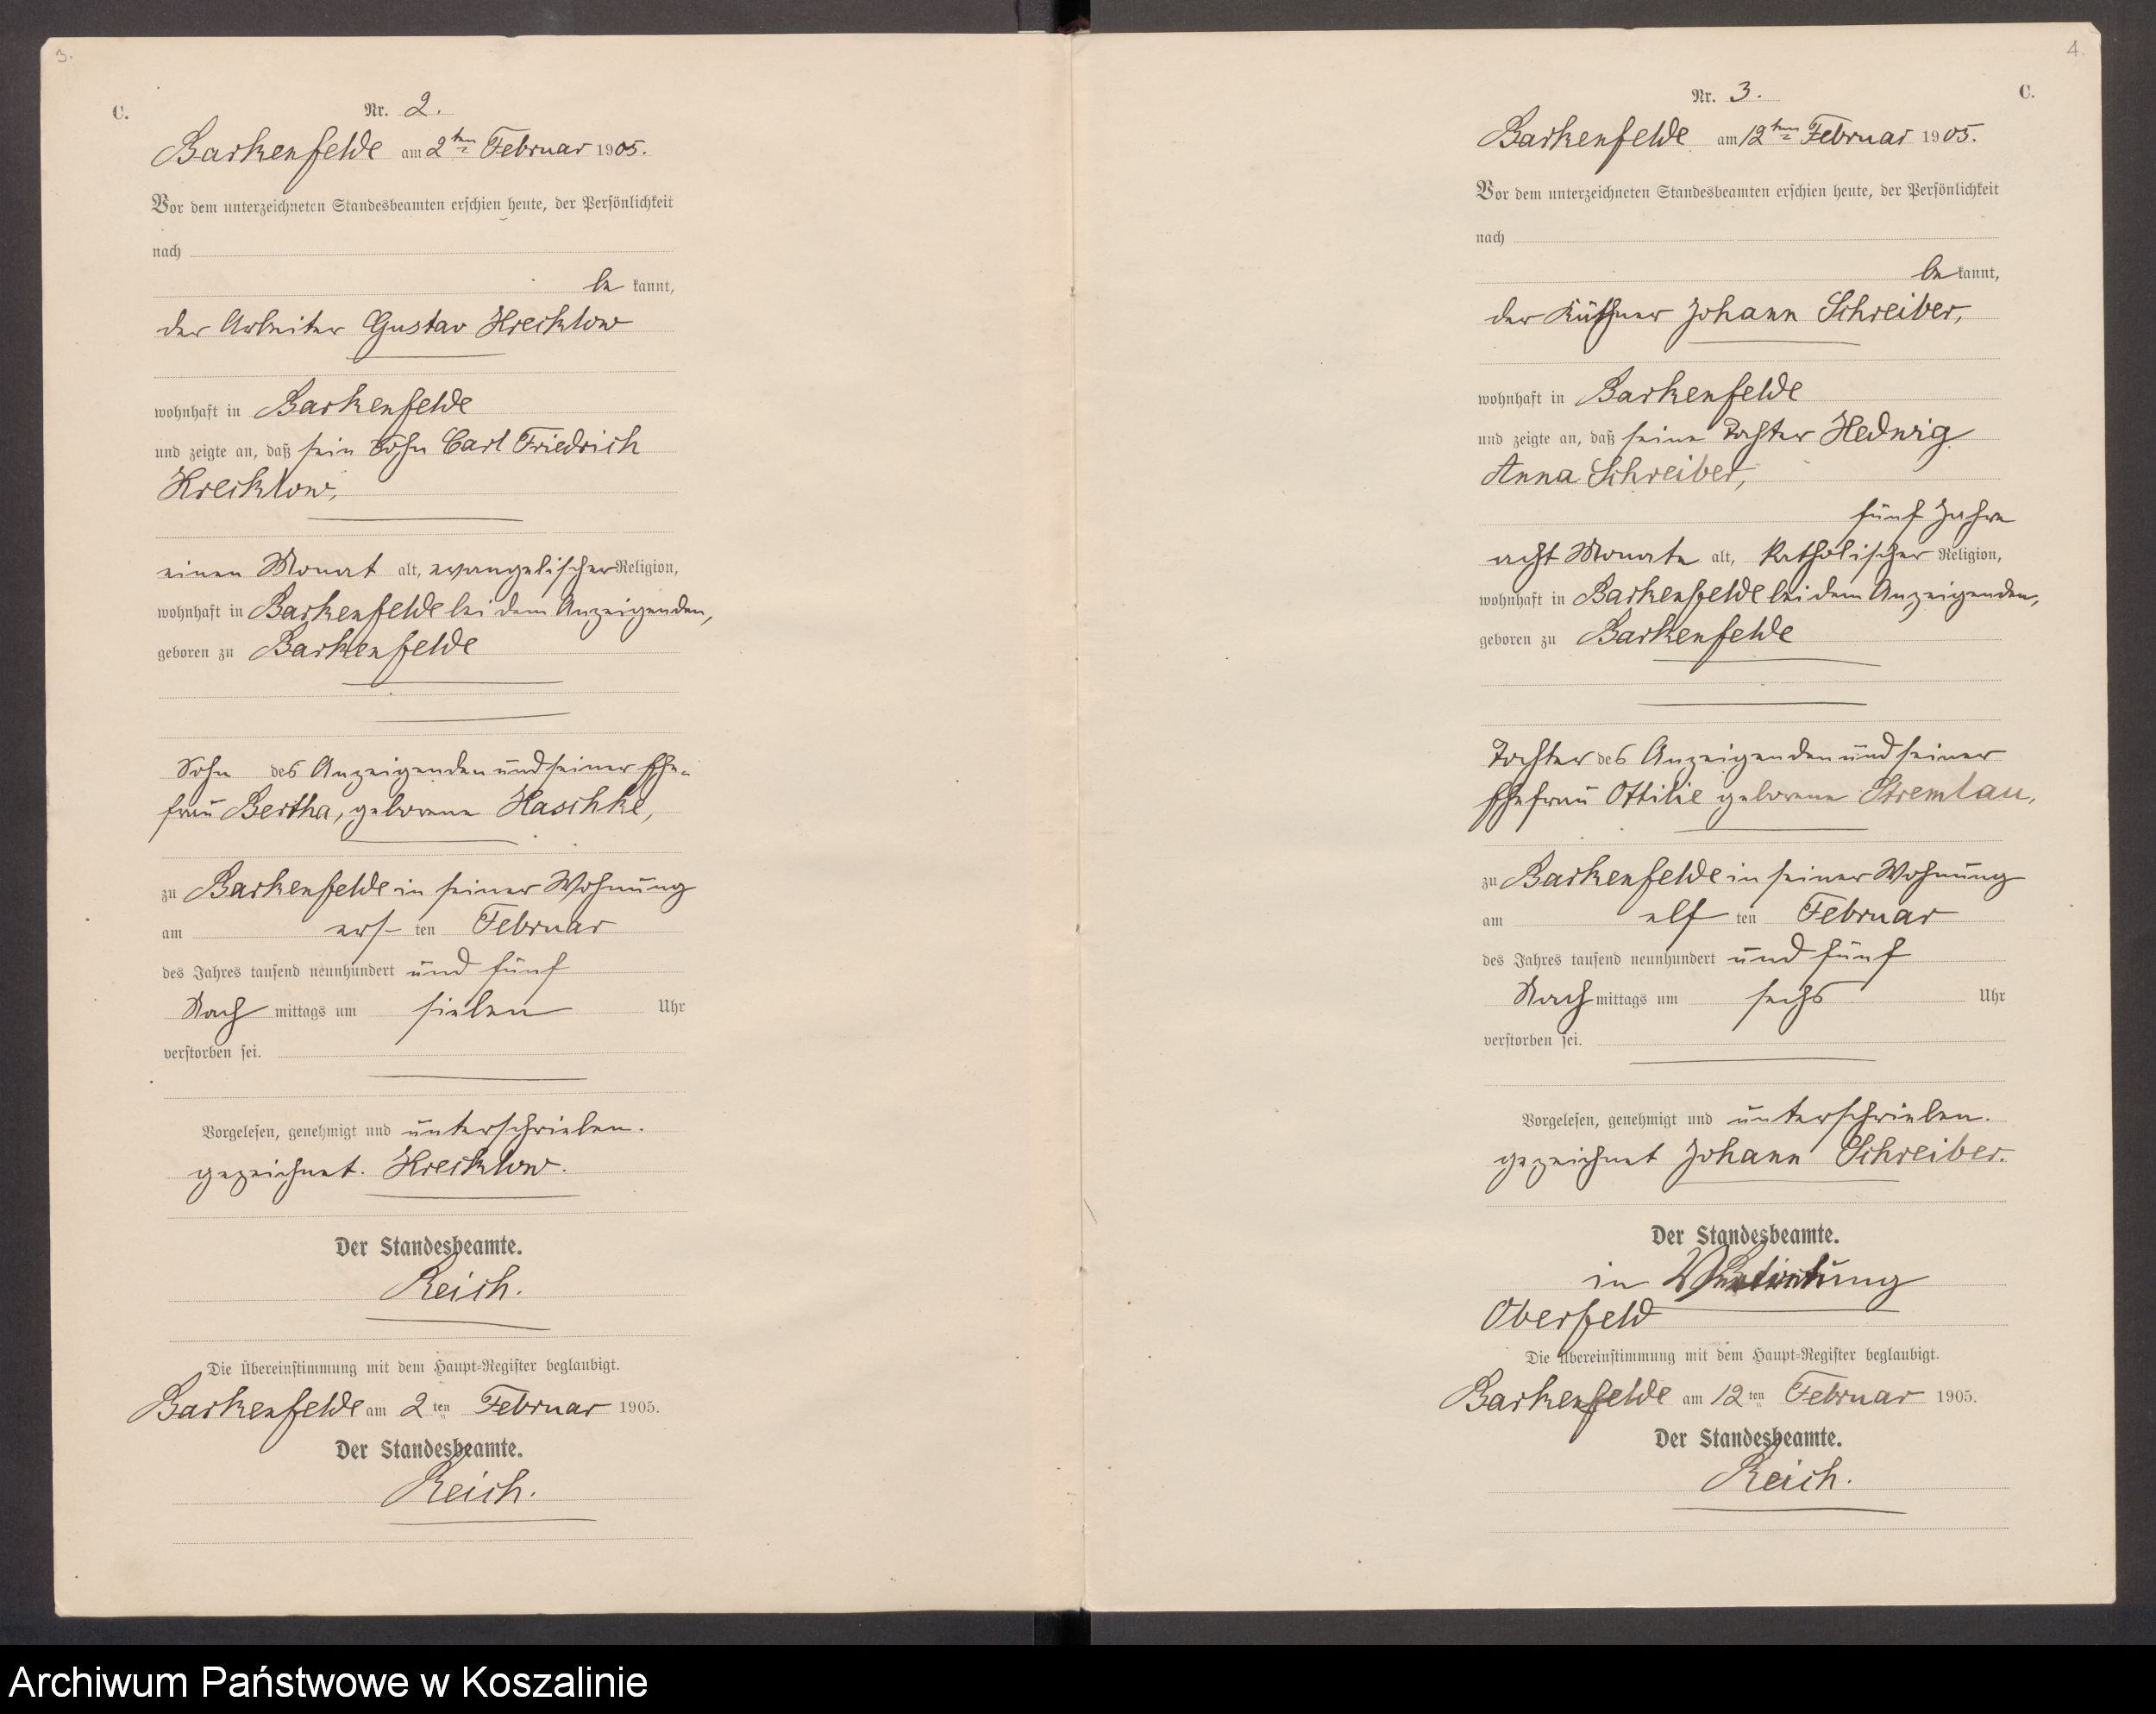 3.
C.
Nr. 2.
Barkenfelde am 2ten Februar 1905.
Vor dem unterzeichneten Standesbeamten erschien heute, der Persönlichkeit
nach
be kannt,
der Arbeiter Gustav Krecklow
wohnhaft in Barkenfelde
und zeigte an, daß sein Sohn Carl Friedrich
Krecklow,
einen Monat alt, evangelischer Religion,
wohnhaft in Barkenfelde bei dem Anzeigenden,
geboren zu Barkenfelde
Sohn des Anzeigenden und seiner Ehe-
frau Bertha, geborene Haschke,
zu Barkenfelde in seiner Wohnung
am ers- ten Februar
des Jahres tausend neunhundert und fünf
Nach mittags um sieben Uhr
verstorben sei.
Vorgelesen, genehmigt und unterschrieben.
gezeichnet. Krecklow.
Der Standesbeamte.
Reich.
Die Übereinstimmung mit dem Haupt-Register beglaubigt.
Barkenfelde am 2 ten Februar 1905.
Der Standesbeamte.
Reich.
4.
C.
Nr. 3.
Barkenfelde am 12ten Februar 1905.
Vor dem unterzeichneten Standesbeamten erschien heute, der Persönlichkeit
nach
be kannt,
der Büdner Johann Schreiber,
wohnhaft in Barkenfelde
und zeigte an, daß seine Tochter Hedwig
Anna Schreiber,
fünf Jahre
acht Monate alt, katholischer Religion,
wohnhaft in Barkenfelde bei dem Anzeigenden,
geboren zu Barkenfelde
Tochter des Anzeigenden und seiner
Ehefrau Ottilie geborene Stremlau,
zu Barkenfelde in seiner Wohnung
am elf ten Februar
des Jahres tausend neunhundert und fünf
Nach mittags um sechs Uhr
verstorben sei.
Vorgelesen, genehmigt und unterschrieben.
gezeichnet Johann Schreiber.
Der Standesbeamte.
in Vertretung
Oberfeld
Die Übereinstimmung mit dem Haupt-Register beglaubigt.
Barkenfelde am 12 ten Februar 1905.
Der Standesbeamte.
Reich.
Archiwum Państwowe w Koszalinie